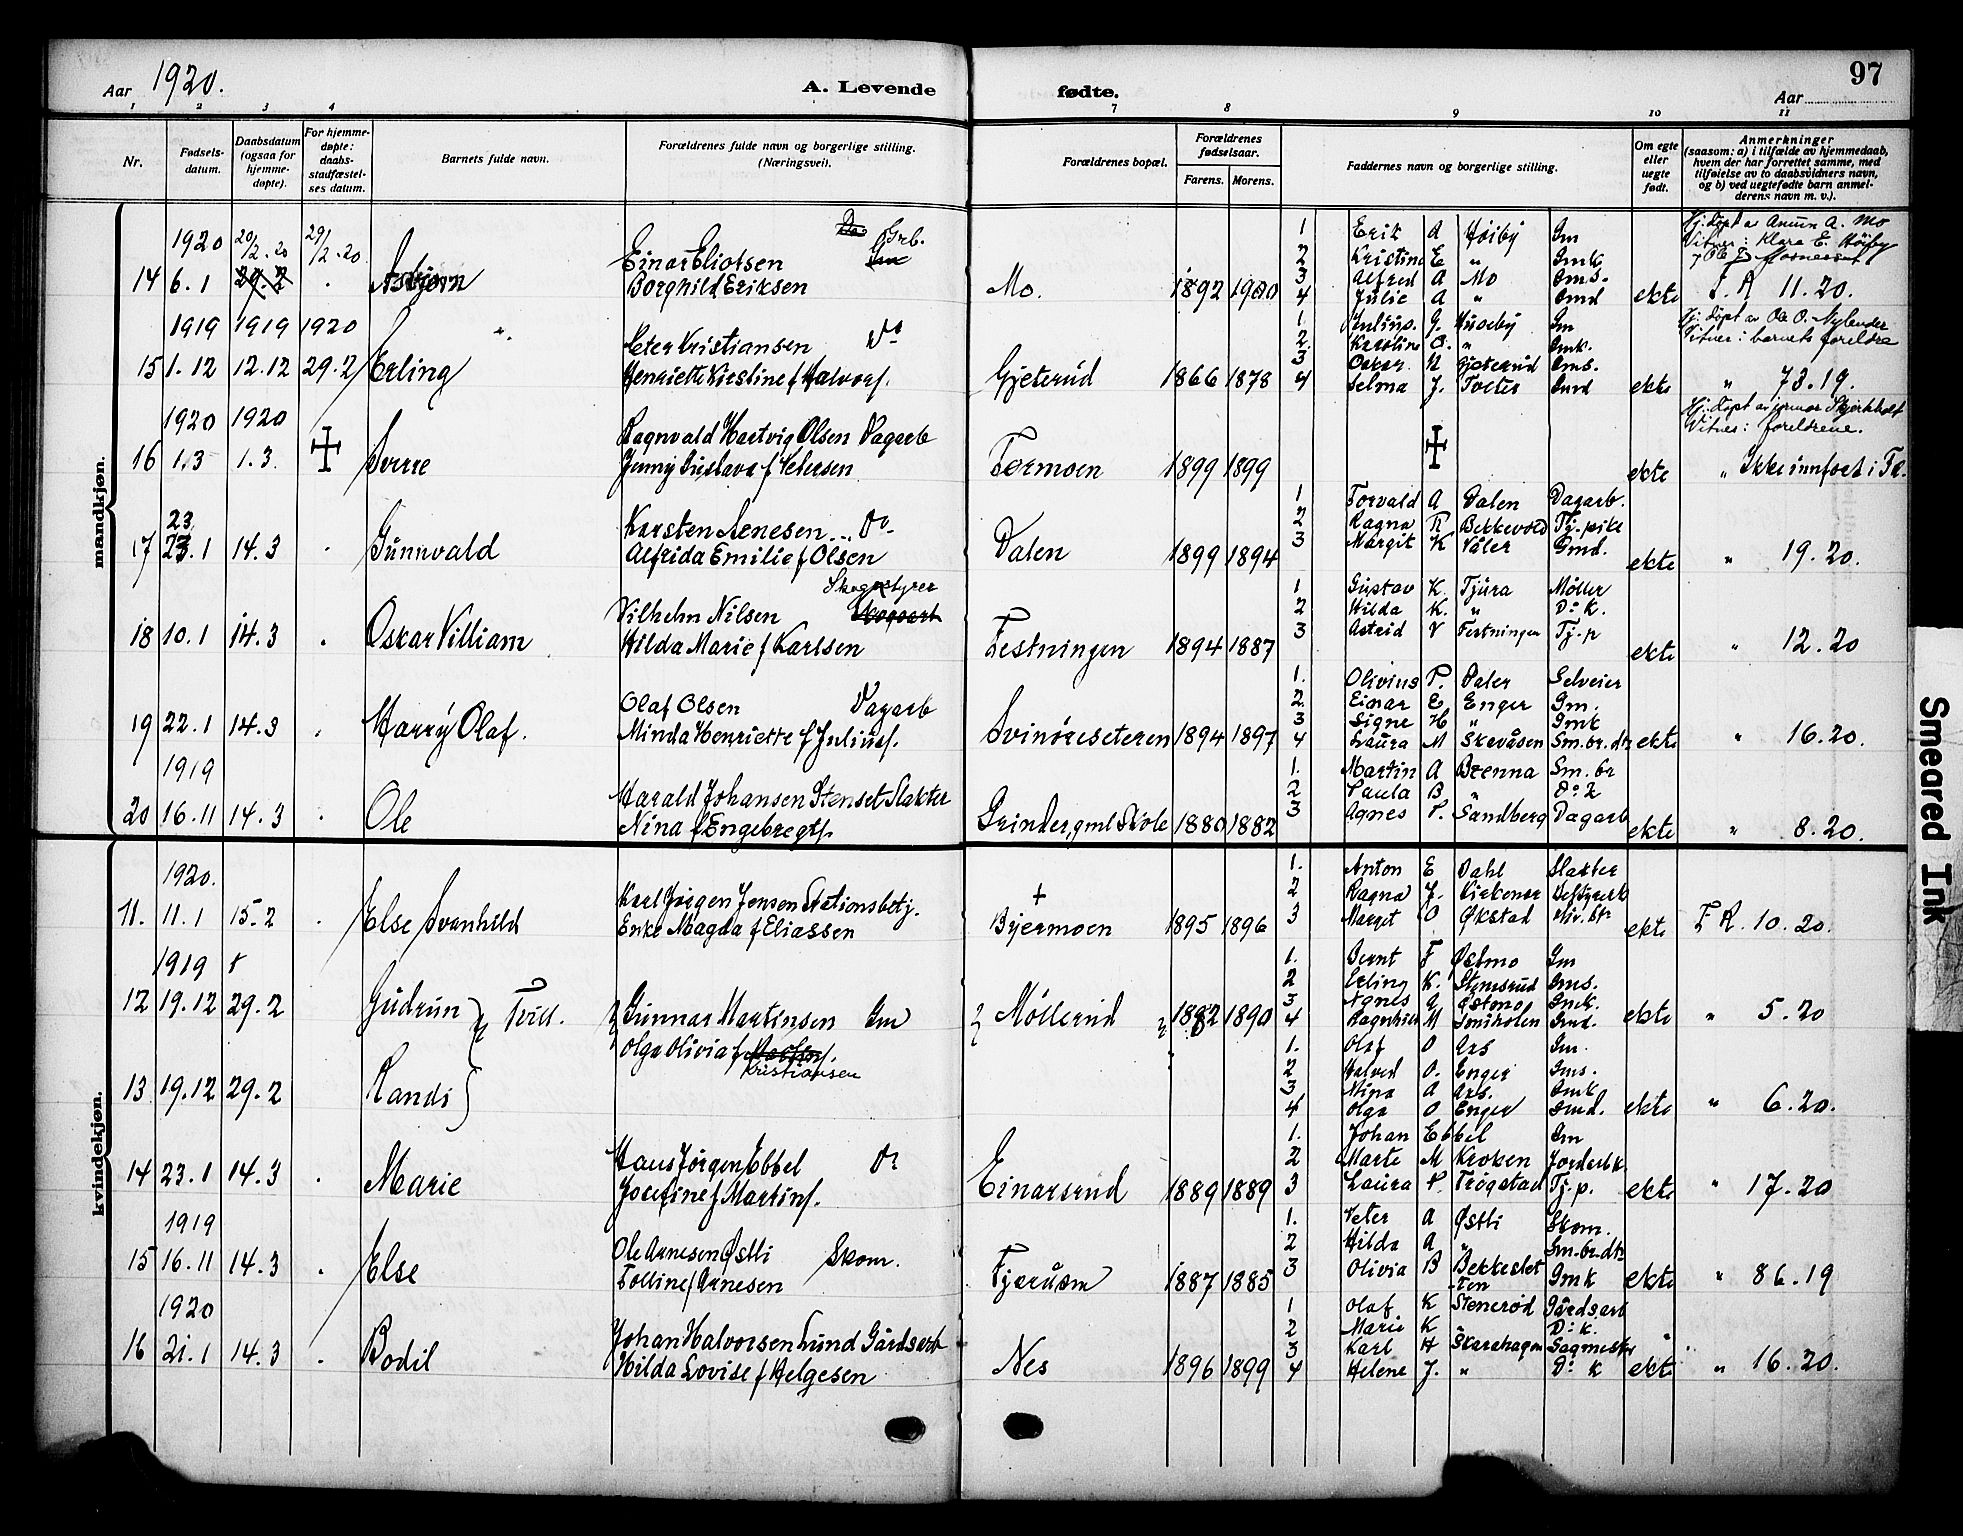 Aar 1920.
A. Levende
fødte.
97
Aar
1 2 3 4
7 8 9 10 11
Nr.
Fødsels-
datum.
Daabsdatum
(ogsaa for
hjemme-
døpte).
For hjemme-
døpte:
daabs-
stadfæstel-
ses datum.
Barnets fulde navn.
Forældrenes fulde navn og borgerlige stilling.
(Næringsvei).
Forældrenes bopæl.
Forældrenes
fødselsaar.
Farens. Morens.
Faddernes navn og borgerlige stilling.
Om egte
eller
uegte
født.
Anmerkninger
(saasom: a) i tilfælde av hjemmedaab,
hvem der har forrettet samme, med
tilføielse av to daabsvidners navn,
og b) ved uegtefødte barn anmel-
derens navn m. v.).
mandkjøn.
1920 20/2.20 29/2.20
14 6.1 29.2 Asbjørn
Grb.
Einar Eliotsen
Borghild Eriksen
Mo. 1892 1900
1 Erik A Høiby Gm
2 Kristine E " Gmk
3 Alfred A Mo Gms.
4 Julie A " Gmd
ekte
Hj. døpt av Amun A. Mo
Vitner: Klara E. Høiby
F. R 11.20.
1919 1919 1920
15 1.12 12.12 29.2 Erling
Peter Kristiansen Do
Henriette Kirstine f Halvors.
Gjeterud 1866 1878
1. Julius. G. Huseby Gm
2. Karoline O. " Gmk.
3 Oskar N Gjeterud Gms.
4 Selma J. Toeter Gmd
ekte
Hj. døpt av Ole O. Nylender
Vitner: barnets foreldre
" 73.19.
1920 1920
16 1.3 1.3. Sverre
Ragnvald Hartvig Olsen Dagarb
Jenny Gustava f Petersen
Termoen 1899 1899
ekte
Hj. døpt av jormor Skjerkholt
Vitner: foreldrene.
" Ikke innført i F.R.
23
17 23.1 14.3 Gunnvald
Karsten Arnesen Do
Alfrida Emilie f Olsen
Dalen 1899 1894
1 Torvald A Dalen Dagarb.
2 Ragna R Bekkevold Tj.pike
3 Margit K Våler Gmd.
ekte " 19.20.
18 10.1 14.3 Oskar William
Skogstyrer
Vilhelm Nilsen
Hilda Marie f Karlsen
Festningen 1894 1887
1 Gustav K. Tjura Møller
2 Hilda K. " Do k.
3 Astrid V Festningen Tj.p
ekte " 12.20
19 22.1 14.3 Harry Olaf.
Olaf Olsen Dagarb
Minda Henriette f Julius.
Svinöreseteren 1894 1897
1. Olivius P. Dalen Selveier
2 Einar E Enger Gm.
3 Signe H " Gmk
4 Laura M Skevåsen Sm.br.dtr
ekte " 16.20.
1919
20 16.11 14.3 Ole
Harald Johansen Stenset Slakter
Nina f Engebregts.
Grinder, gml Skole 1880 1882
1. Martin A Brenna Sm.br
2 Paula B " Do k
3 Agnes P. Sandberg Dagarb
ekte " 8.20.
kvindekjøn.
1920.
11. 11.1 15.2 Else Svanhild
Karl Jørgen Jensen Stationsbetj.
Enke Magda f Eliassen
Bjermoen 1895 1896
1. Anton E Dahl Slakter
2 Ragna J. Kirkener
3 Margit O Økstad
ekte F R. 10.20.
1919
12 19.12 29.2 Gudrun Tvill.
Gunnar Martinsen Gm
Olga Olivia f
Kristiansen
Møllerud 1882 1890
1. Bernt F Østmo Gm
2 Erling K. Stemsrud Gms.
3 Agnes A Østmo Gmk.
4 Ragnhild M Smiholen Gmd.
ekte " 5.20
13 19.12 29.2 Randi
1. Olaf O Aas Gm.
2 Halvrd O. Enger Gms.
3 Nina A Aas. Gmk
4 Olga O Enger Gmd.
ekte " 6.20.
14 23.1 14.3 Marie
Hans Jørgen Ebbel Do
Josefine f Martins.
Einarsrud 1889 1889
1. Johan Ebbel Gm
2 Marte M Kroken Jorderbk.
3 Laura P. Trøgstad Tj.p.
ekte " 17.20
1919
15 16.11 14.3 Else
Ole Arnesen Østli Skom.
Tolline f Arnesen
Tjeråsen 1887 1885
1. Peter A Østli Skom.
2 Hilda A " Sm.br.dtr
3 Olivia B Bekkeslet-
ten Gmk
ekte " 86.19
1920
16 21.1 14.3 Bodil
Johan Halvorsen Lund Gårdsarb
Hilda Lovise f Helgesen
Nes 1896 1899
1 Olaf K Stenerød Gårdsarb
2 Marie K " Do k.
3 Karl H Skarahagen Sagmester
4 Helene J. " Do K
ekte " 16.20.
Smeared Ink